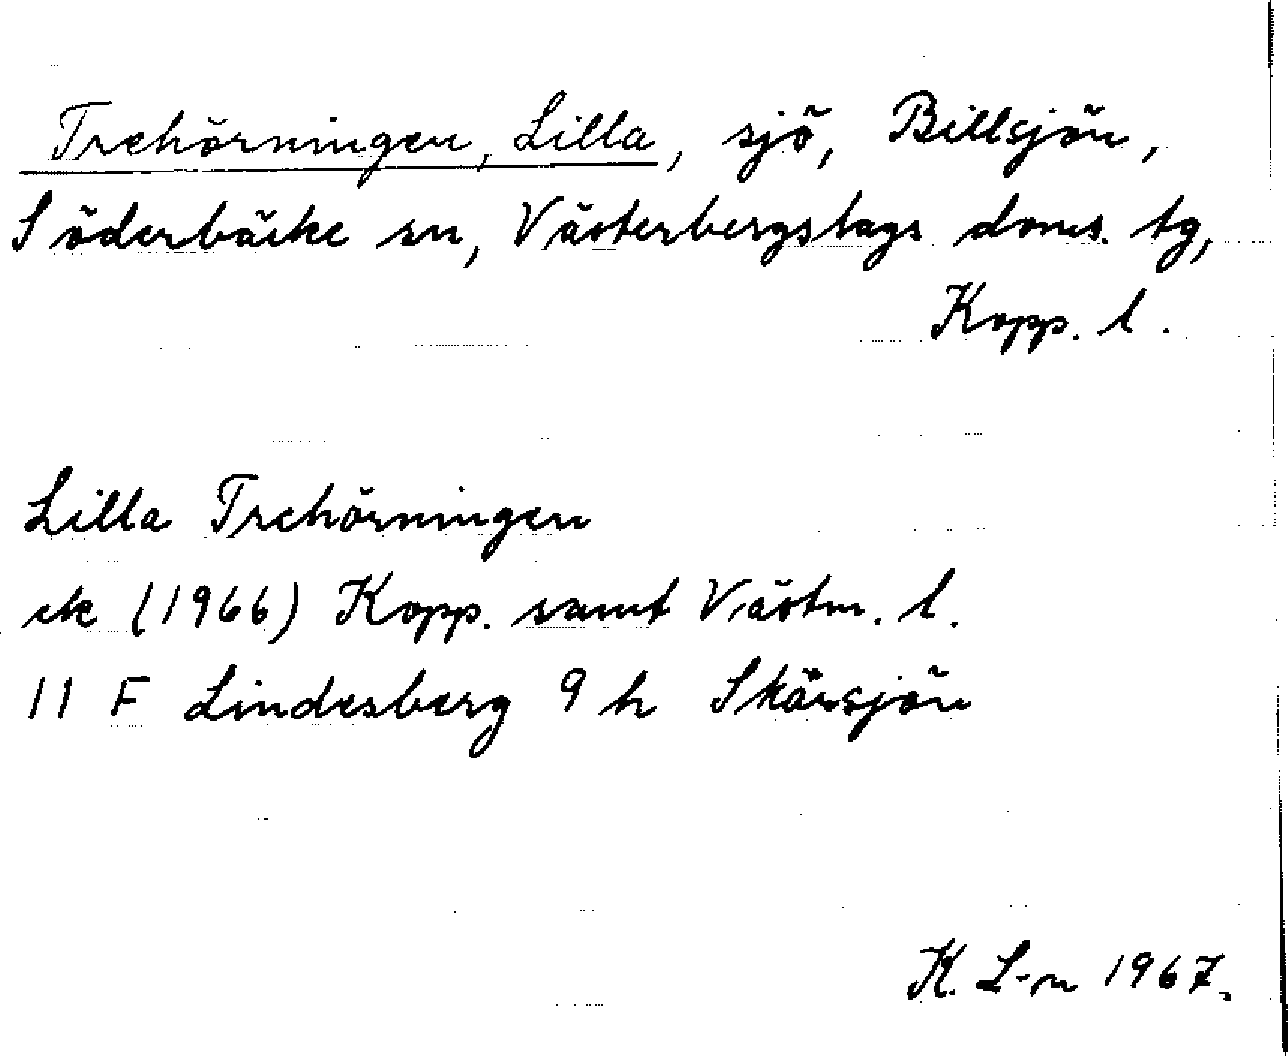 Trehörningen, Lilla, sjö, Billsjön,
Söderbärke sn, Västerbergslags doms. tg,
Kopp. l.
Lilla Trehörningen
ek (1966) Kopp. samt Västm. l.
11 F Lindesberg 9 h Skärsjön
K. L-n 1967.